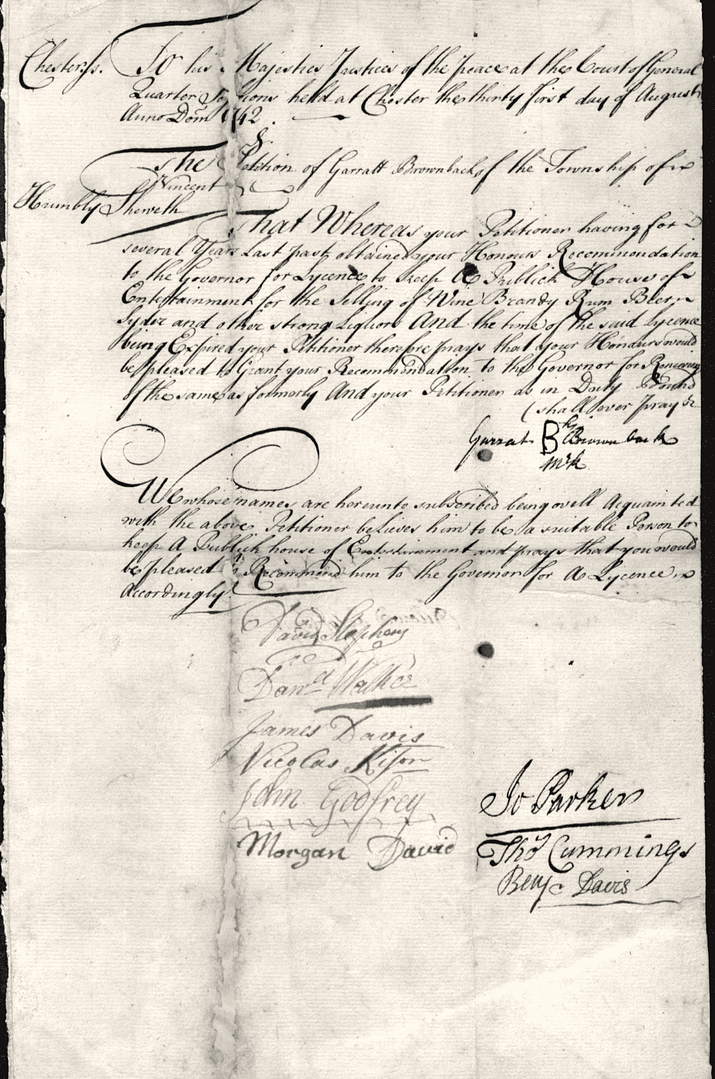 Chester ss. To his Majesties Justices of the peace at the Court of General
Quarter Sessions held at Chester the thirty first day of August
Anno Dom 1742
The Petition of Garratt Brownback of the Township of
Vincent
Humbly Sheweth
That Whereas your Petitioner having for
several Years Last past obtained your Honours Recomendation
to the Governor for Lycence to keep A Publick House of
Entertainment for the Selling of Wine Brandy Rum Beer
Syder and other strong Liquors And the time of the said Lycence
being Expired your Petitioner therefore prays that your Honours would
be pleased to Grant your Recommendation to the Governor for Renewing
of the same as formerly And your Petitioner as in Duty Bound
shall ever pray &c
Garrat B Brownback
mrk
We whose names are hereunto subscribed being well Acquainted
with the above Petitioner believes him to be a suitable Person to
keep A Publick house of Entertainment and prays that you would
be pleased to Recommend him to the Governor for A Lycence
Accordingly
David Stephens
Danel Walker
James Davis
Nicolas Kison
John Godfrey
Morgan David
Jo Parker
Thos Cummings
Benj Davis